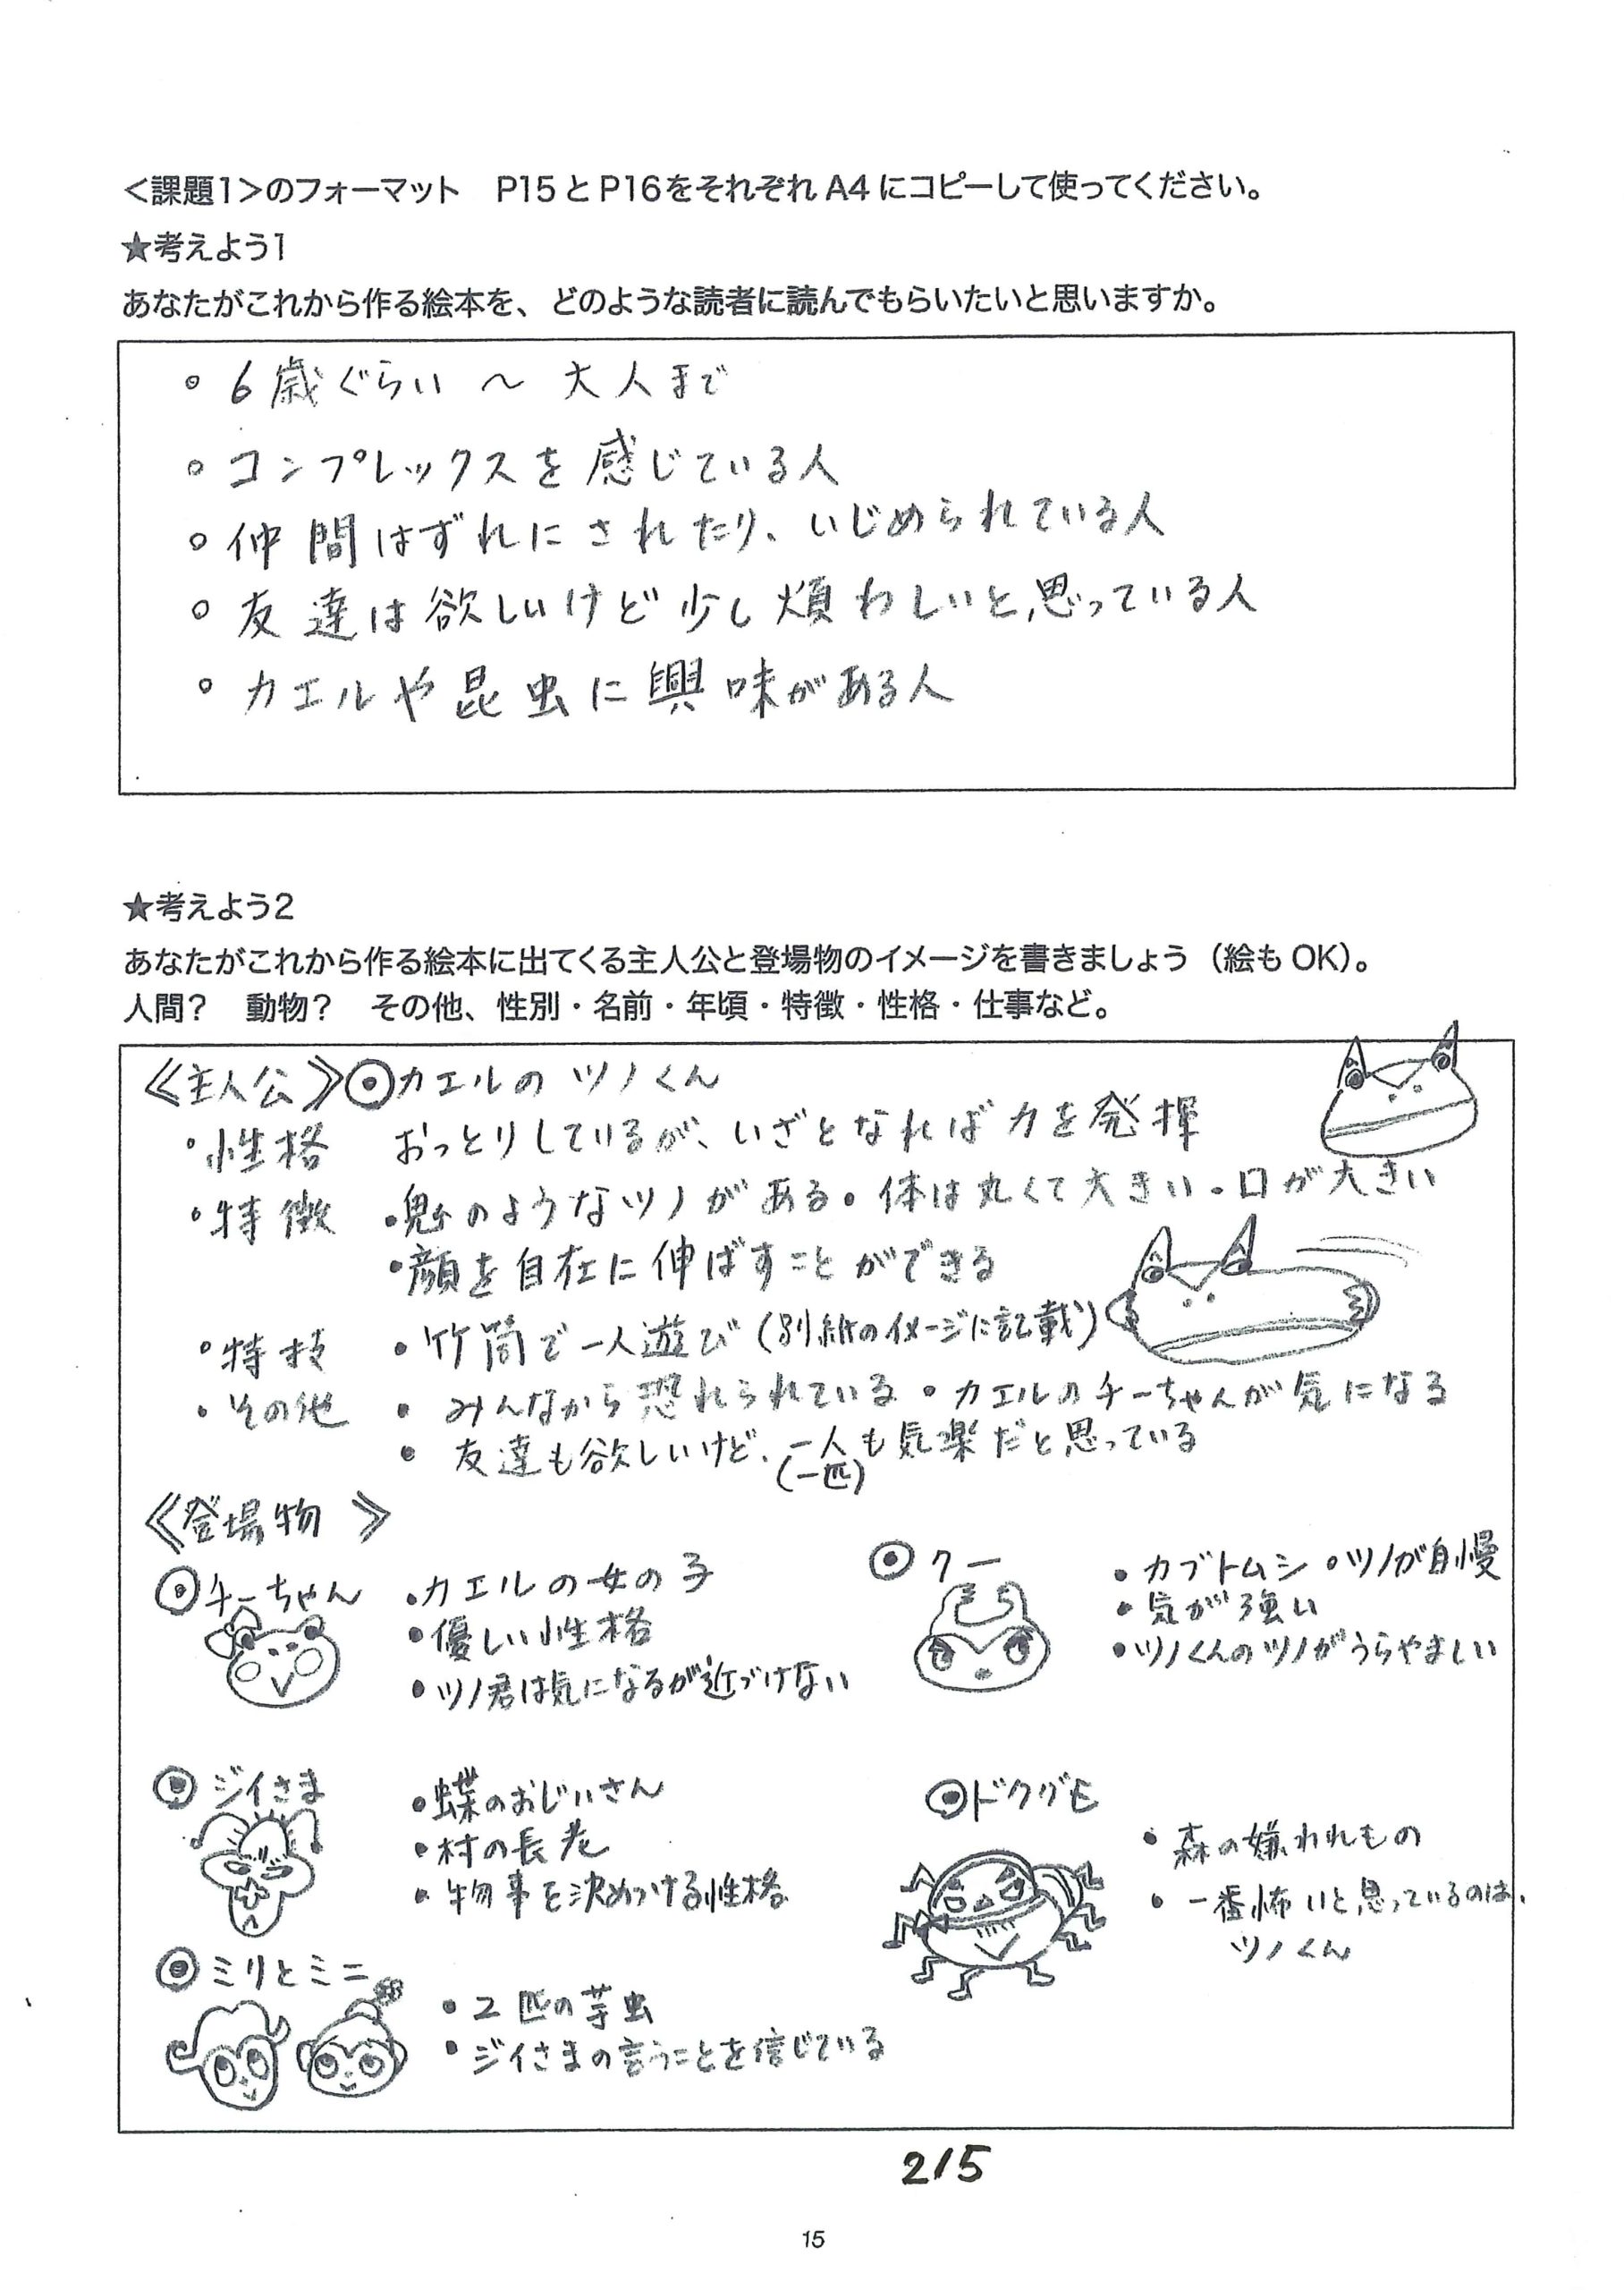 <課題1>のフォーマット　P15とP16をそれぞれA4にコピーして使ってください。
★考えよう1
あなたがこれから作る絵本を、どのような読者に読んでもらいたいと思いますか。
。6歳ぐらい 〜 大人まで
。コンプレックスを感じている人
。仲間はずれにされたり、いじめられている人
。友達は欲しいけど少し煩わしいと思っている人
。カエルや昆虫に興味がある人
★考えよう2
あなたがこれから作る絵本に出てくる主人公と登場物のイメージを書きましょう（絵もOK）。
人間？　動物？　その他、性別・名前・年頃・特徴・性格・仕事など。
《主人公》◉カエルのツノくん
・性格　おっとりしているが、いざとなれば力を発揮
・特徴　・鬼のようなツノがある。体は丸くて大きい・口が大きい
・顔を自在に伸ばすことができる
・特技　・竹筒で一人遊び（別紙のイメージに記載）
・その他　・みんなから恐れられている・カエルのチーちゃんが気になる
・友達も欲しいけど、一人も気楽だと思っている
(一匹)
《登場物》
◉チーちゃん　・カエルの女の子
・優しい性格
・ツノ君は気になるが近づけない
◉クー　・カブトムシ ・ツノが自慢
・気が強い
・ツノくんのツノがうらやましい
◉ジイさま　・蝶のおじいさん
・村の長老
・物事を決めつける性格
◉ドクグモ
・森の嫌われもの
・一番怖いと思っているのは、
ツノくん
◉ミリとミニ
・2匹の芋虫
・ジイさまの言うことを信じている
2/5
15